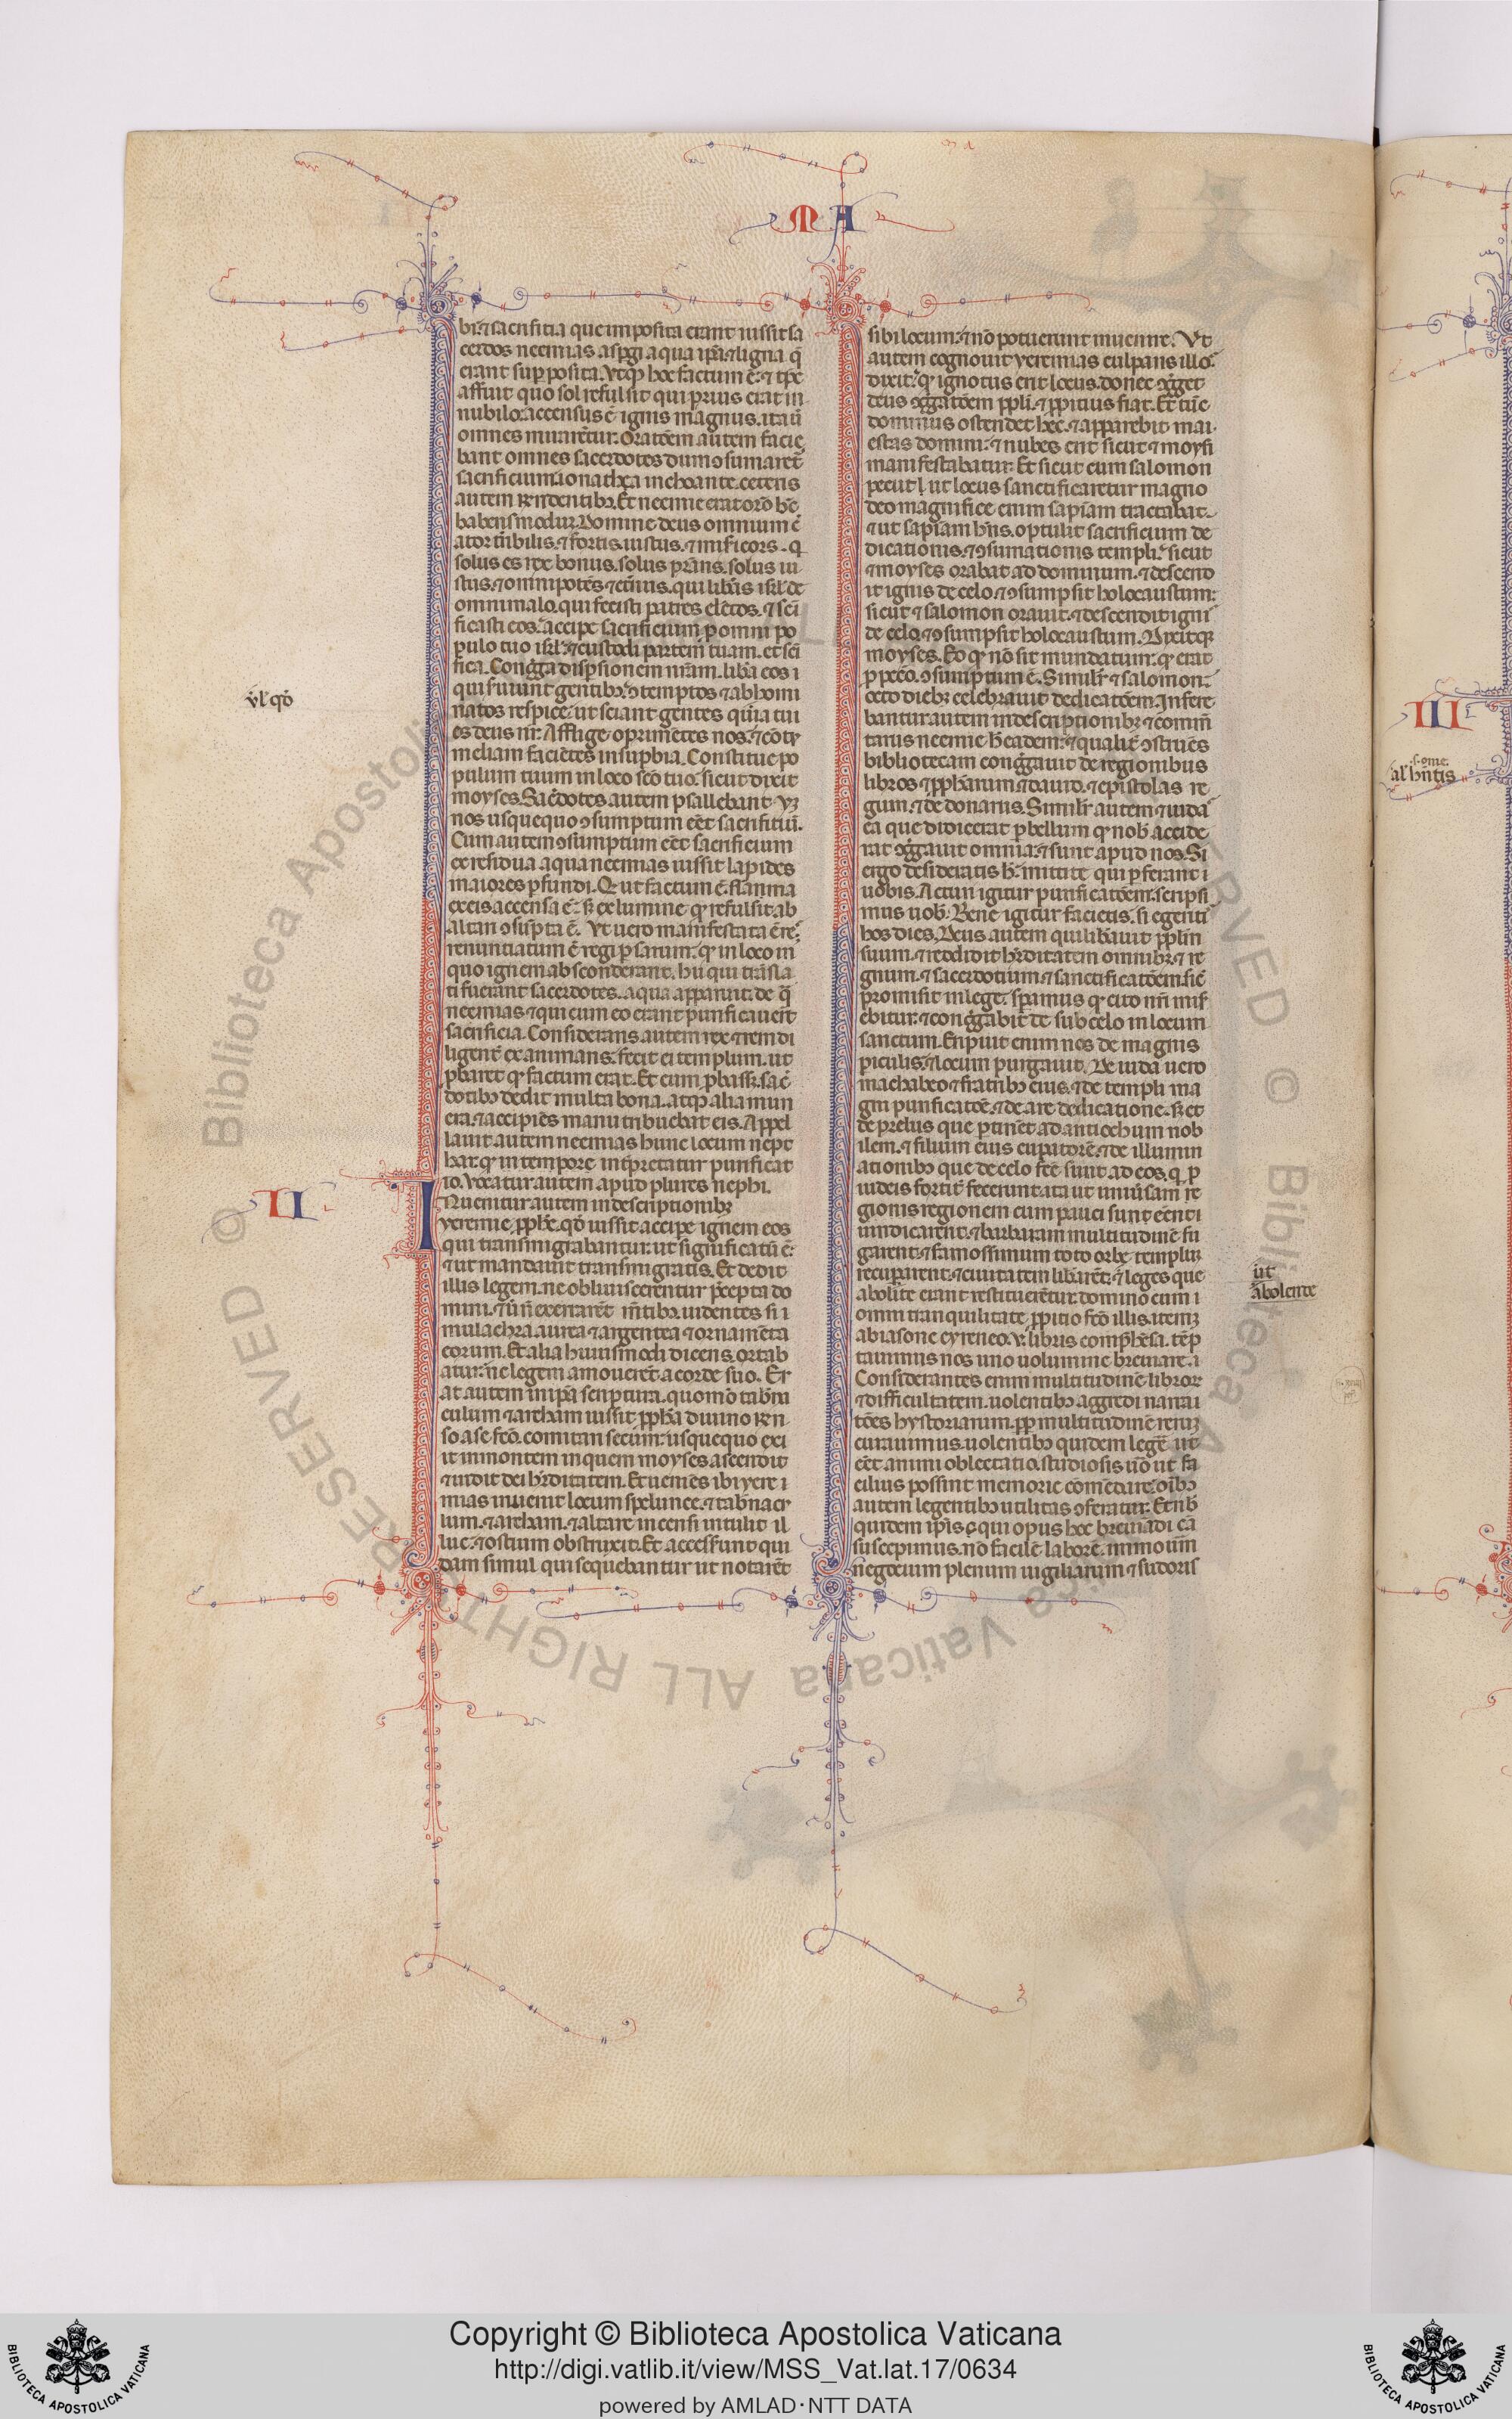 MA
bi. ⁊ sacrificia que imposita erant iussit sa
cerdos neemias aspgi aqua ip̄a. ⁊ ligna q̄
erant sup posita. Vtq; hoc factum ē. ⁊ tp̄e
affuit quo sol refulsit qui prius erat in
nubilo. accensus ē ignis magnus. ita ut̄
omnes mirarētur. Oratōem autem facie
bant omnes sacerdotes dum ꝯsumaret̄
sacrificium. ionatha inchoante. ceteris
autem respondentibꝫ. Et neemie erat or̄o hc̄
habens modum. Domine deus omnium c̄
ator tr̄ibilis. ⁊ fortis. iustus. ⁊ misericors. q̄
solus es rex bonus. solus pr̄ans. solus iu
stus. ⁊ omnipotēs. ⁊ et̄nus. qui lib̄as isrl̄ de
omni malo. qui fecisti patres elēctos. ⁊ sc̄i
ficasti eos. accipe sacrificium p omni po
pulo tuo isrl̄. ⁊ custodi partem tuam. et sc̄i
fica. Congrega dispsionem nr̄am. libera eos i
qui seruiunt gentibꝫ. ꝯtemptos ⁊ abhomi
vl̄ qō
natos respice. ut sciant gentes quia tu
es deus nr̄. Afflige oprimētes nos. ⁊ cōtu
meliam faciētes in supbia. Constitue po
pulum tuum in loco sc̄o tuo. sicut dixit
moyses. Sac̄dotes autem psallebant ym
nos usquequo ꝯsumptum eēt sacrificiū.
Cum autem ꝯsumptum eēt sacrificium
ex residua aqua neemias iussit lapides
maiores pfundi. Q ut factum ē flamma
ex eis accensa ē. sꝫ ex lumine q refulsit ab
altari ꝯsūpta ē. Vt uero manifestata ē res.
renuntiatum ē regi psarum. q in loco in
quo ignem absconderant. hii qui trāsla
ti fuerant sacerdotes. aqua apparuit. de q̄
neemias ⁊ qui cum eo erant purificauerūt
sacrificia. Considerans autem rex ⁊ rem di
ligent̄ examinans. fecit ei templum. ut
pbaret q factum erat. Et cum pbasset. sac̄
dotibꝫ dedit multa bona. atq; alia mun
era. ⁊ accipiēs manu tribuebat eis. Appel
lauit autem neemias hunc locum nept
har. q in tempore int̄pretatur purificat
io. Vocatur autem apud plures nephi.
II
INuenitur autem in descriptionibꝫ
yeremie pph̄e. qō iussit accipe ignem eos
qui transmigrabantur. ut significatū ē.
⁊ ut mandauit transmigratis. Et dedit
illis legem. ne obliuiscerentur p̄cepta do
mini. ⁊ ut n̄ exerrarēt mētibꝫ uidentes si i
mulachra aurea ⁊ argentea ⁊ ornamēta
eorum. Et alia huiusmodi dicens. ortab
atur. ne legem amouerēt a corde suo. Er
at autem in ip̄a scriptura. quomō tab̄na
culum ⁊ archam iussit pph̄a diuino resp̄on
so a se fc̄o. comitari secum. usquequo exi
it in montem in quem moyses ascendit
⁊ uidit dei h̄ditatem. Et ueniēs ibi yere i
mias inuenit locum spelunce. ⁊ tab̄nacu
lum. ⁊ archam. ⁊ altare incensi intulit il
luc. ⁊ ostium obstruxit. Et accesserunt qui
dam simul qui sequebantur ut notarēt
sibi locum. ⁊ nō potuerunt inuenire. Vt
autem cognouit yeremias culpans illos.
dixit. q ignotus erit locus. donec ꝯgget
deus ꝯggatōem ppli. ⁊ ppitius fiat. Et tūc
dominus ostendet hec. ⁊ apparebit mai
estas domini. ⁊ nubes erit sicut ⁊ moysi
manifestabatur. Et sicut cum salomon
peciit ut locus sanctificaretur magno
deo magnifice enim sapiam tractabat.
⁊ ut sapiam hn̄s. optulit sacrificium de
dicationis. ⁊ ꝯsumationis templi. sicut
⁊ moyses orabat ad dominum. ⁊ descend
it ignis de celo. ⁊ ꝯsumpsit holocaustum.
sicut ⁊ salomon orauit. ⁊ descendit ignis
de celo. ⁊ ꝯsumpsit holocaustum. Dixitq;
moyses. Eo q nō sit mundatum. q erat
p pecc̄o. ꝯsumptum ē. Similr̄ ⁊ salomon.
octo diebꝫ celebrauit dedicatōem. Infere
bantur autem in descriptionibꝫ ⁊ comm̄
tariis neemie h̄ eadem. ⁊ qualit̄ ꝯstruēs
bibliotecam congḡauit de regionibus
libros ⁊ pph̄arum ⁊ dauid. ⁊ epistolas re
gum. ⁊ de donariis. Similr̄ autem ⁊ iudas
ea que didicerat p bellum q nob̄ accide
rat ꝯggauit omnia. ⁊ sunt apud nos. Si
ergo desideratis h̄. mittite qui pferant i
uobis. Acturi igitur purificatōem. scripsi
mus uob̄. Bene igitur facietis. si egeriti
hos dies. Deus autem qui lib̄auit pplm̄
suum. ⁊ reddidit h̄ditatem omnibꝫ. ⁊ re
gnum. ⁊ sacerdotium. ⁊ sanctificatōem. sic̄
promisit in lege. spamus q cito nr̄i mis̄
ebitur. ⁊ congḡabit de sub celo in locum
sanctum. Eripuit enim nos de magnis
piculis. ⁊ locum purgauit. De iuda uero
machabeo ⁊ fratribꝫ eius. ⁊ de templi ma
gni purificatōe. ⁊ de are dedicatione. sꝫ et
de prelus que ptinēt ad antiochum nob
ilem. ⁊ filium eius eupatorē. ⁊ de illumin
ationibꝫ que de celo fc̄e sunt ad eos. q p
iudeis fortit̄ fecerunt. ita ut uniūsam re
gionis regionem cum pauci sunt eēnt i
uindicarent. ⁊ barbaram multitudinē fu
garent. ⁊ famosissimum toto orbe templuꝫ
recuparent. ⁊ ciuitatem lib̄arēt. ⁊ leges que
abolite erant restituerētur. domino cum i
ut
abolente
omni tranquilitate ppitio fc̄o illis. itemꝫ
ab iasone cyreneo. v. libris comphēsa. tēp
tauimus nos uno uolumine breuiare.
Considerantes enim multitudinē libror
⁊ difficultatem. uolentibꝫ aggredi narrati
tōes hystoriarum. pp multitudinē rerum
curauimus. uolentibꝫ quidem legē ut
eēt animi oblectatio. studiosis uō ut fa
cilius possint memorie cōmēdare. oībꝫ
autem legentibꝫ utilitas ꝯferatur. Et nob̄
quidem ip̄is qui opus hoc breuiādi cā
suscepimus. nō facilē laborē. immo uī
negocium plenum uigiliarum ⁊ sudoris
III
al̄ hn̄tis
Copyright © Biblioteca Apostolica Vaticana
http://digi.vatlib.it/view/MSS_Vat.lat.17/0634
powered by AMLAD·NTT DATA
BIBLIOTECA APOSTOLICA VATICANA
BIBLIOTECA APOSTOLICA VATICANA